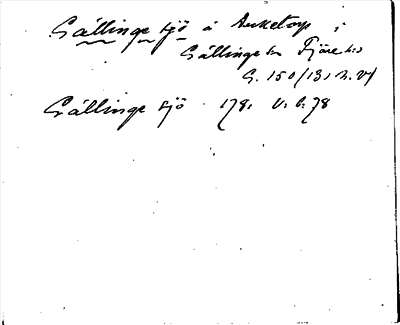 Gällinge sjö å Ancketorp i
Gällinge sn Fjäre hd
G. 150/13,
Gällinge sjö 178,